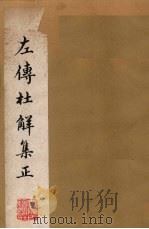 左傳杜解集正